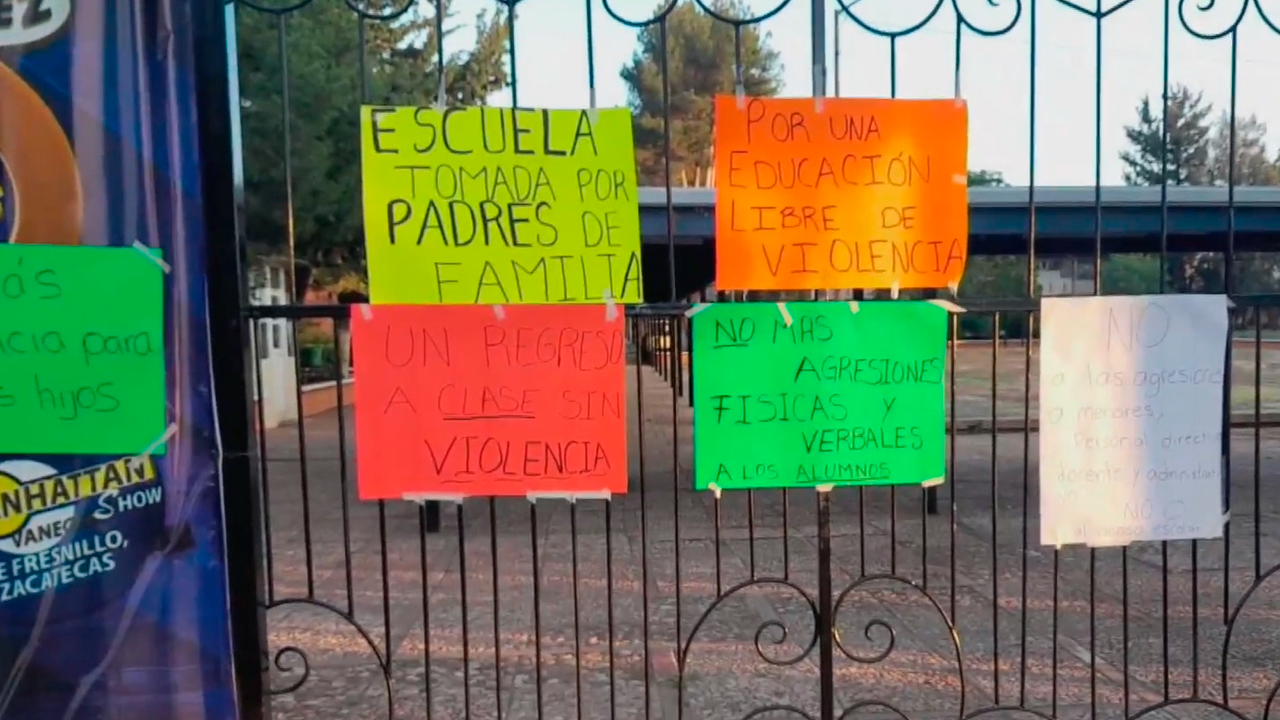 EZ
ESCUELA
TOMADA POR
PADRES DE
FAMILIA
POR UNA
EDUCACIÓN
LIBRE DE
VIOLENCIA
ás
cia para
s hijos
UN REGRESO
A CLASE SIN
VIOLENCIA
NO MAS
AGRESIONES
FISICAS Y
VERBALES
A LOS ALUMNOS
NO
a las agresiones
a menores,
Personal directi
docente y administ
NO
NHATTAN
SHOW
VANEG
E FRESNILLO,
ZACATECAS